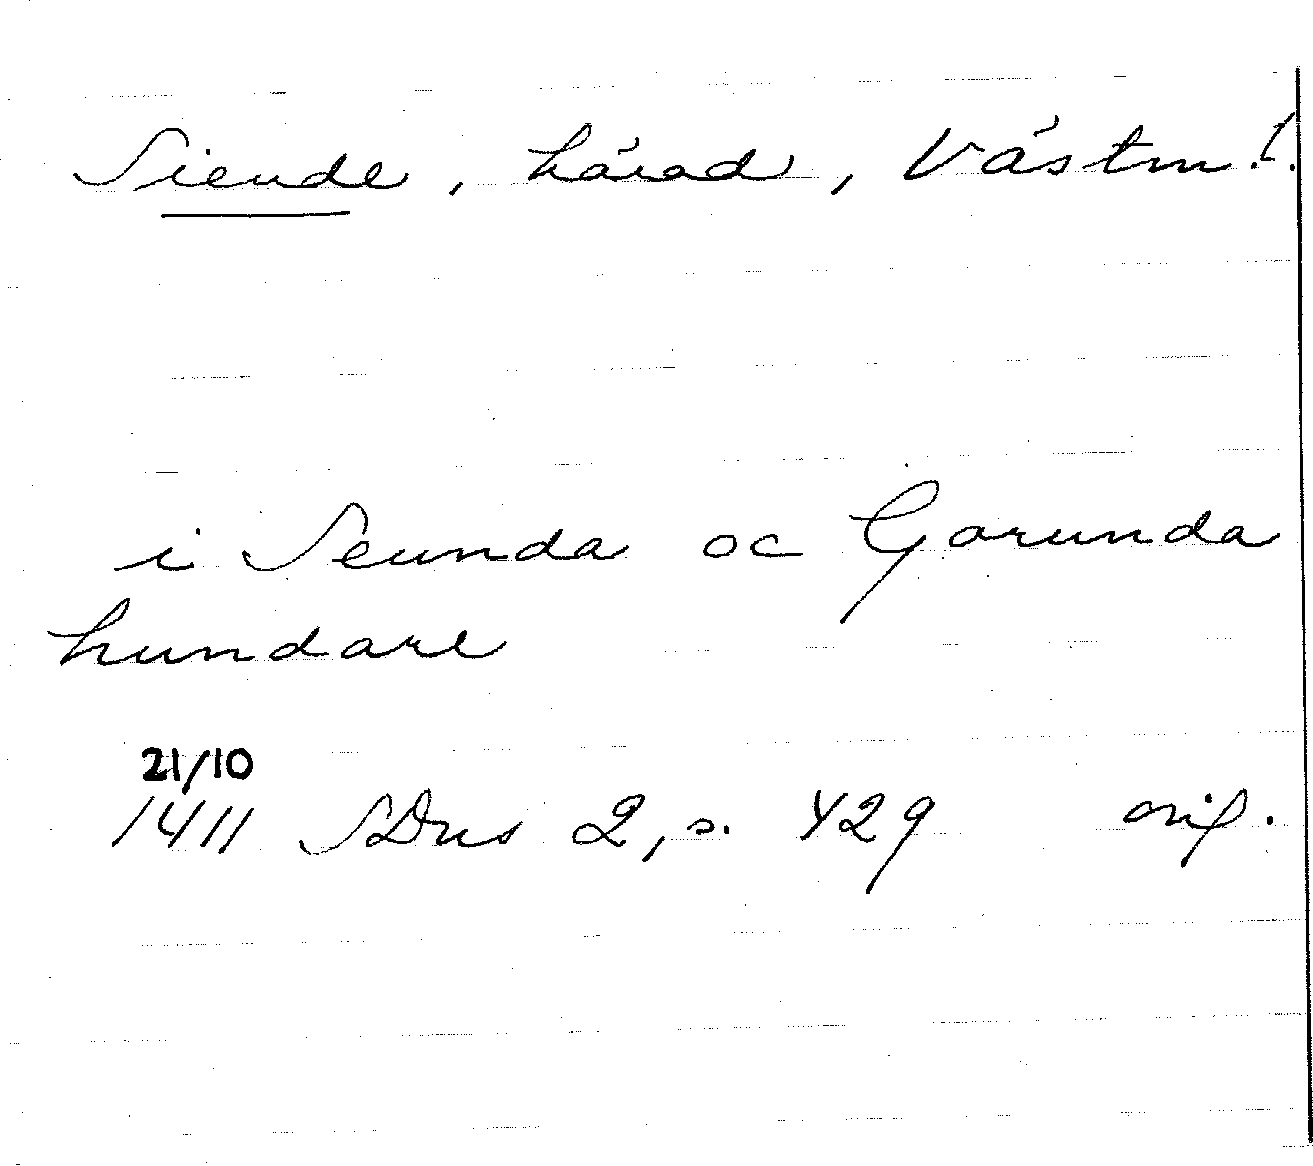 Siende, härad, Västml.
i Seunda oc Gorunda
hundare
21/10
1411 SDns 2, s. 429 orig.